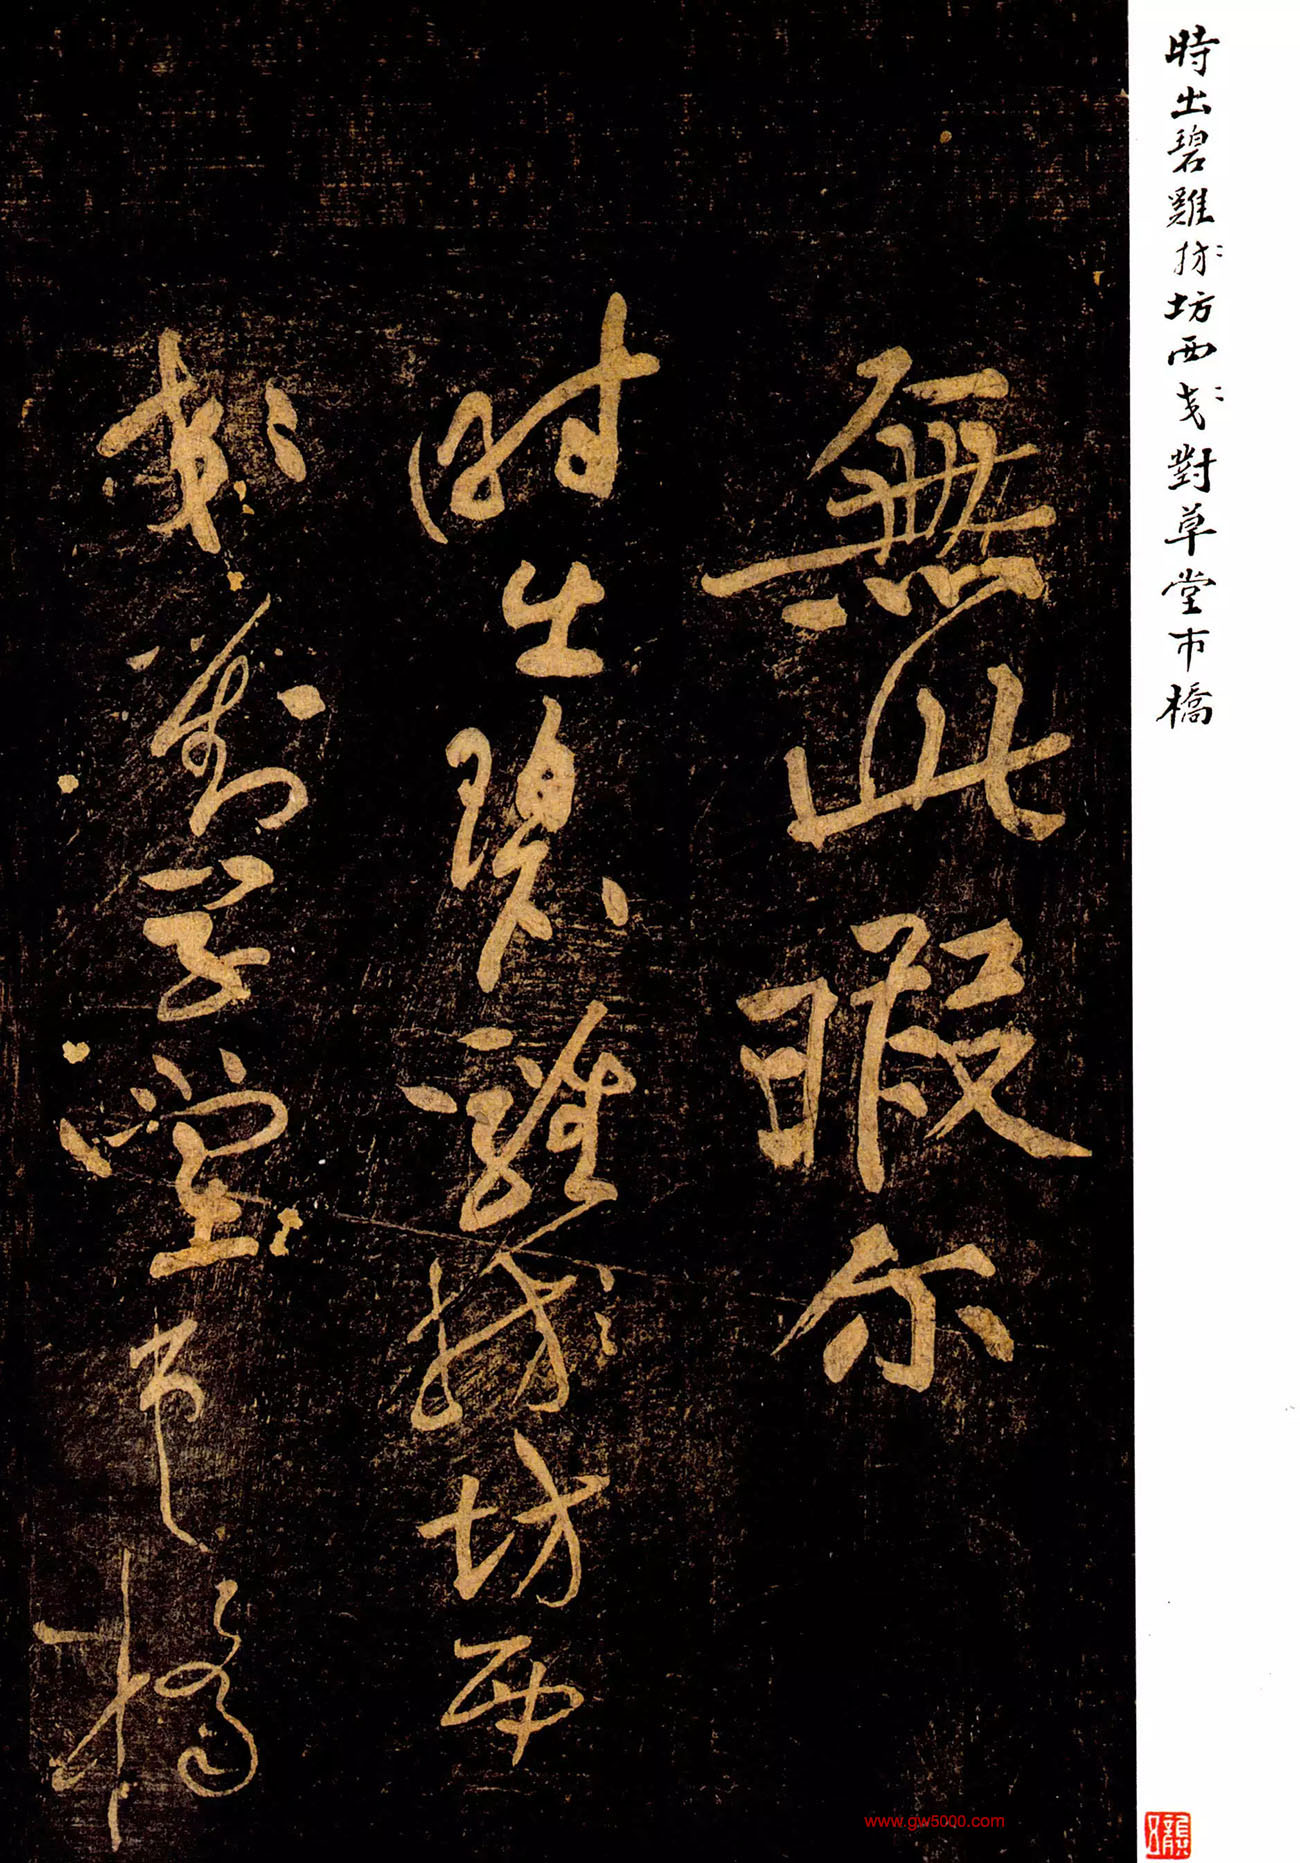 時出碧雞坊坊西郊對草堂市橋
無此暇尔
時出碧雞坊坊西
郊對草堂市橋
www.gw5000.com